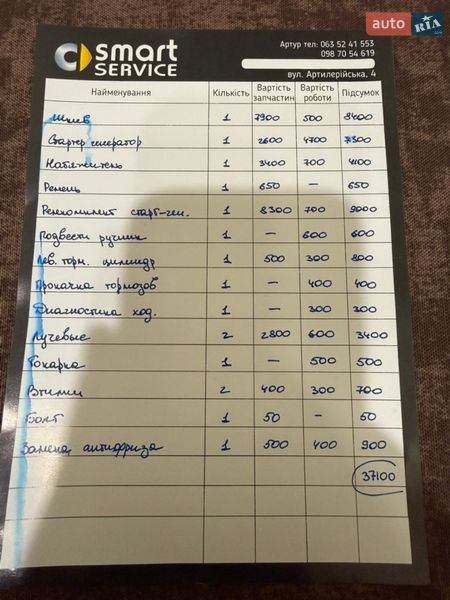 auto RIA
smart
SERVICE
Артур тел: 063 52 41 553
098 70 54 619
вул. Артилерійська, 4
Найменування Кількість Вартість запчастин Вартість роботи Підсумок
Шкив 1 7900 500 8400
Стартер генератор 1 2600 4700 7300
Натяжитель 1 3400 700 4100
Ремень 1 650 — 650
Ремкомплект старт-ген. 1 8300 700 9000
Подвести ручник 1 — 600 600
Лев. торм. цилиндр 1 500 300 800
Прокачка тормозов 1 — 400 400
Диагностика ход. 1 — 300 300
Лучевые 2 2800 600 3400
Токарка 1 — 500 500
Втулки 2 400 300 700
Болт 1 50 — 50
Замена антифриза 1 500 400 900
37100